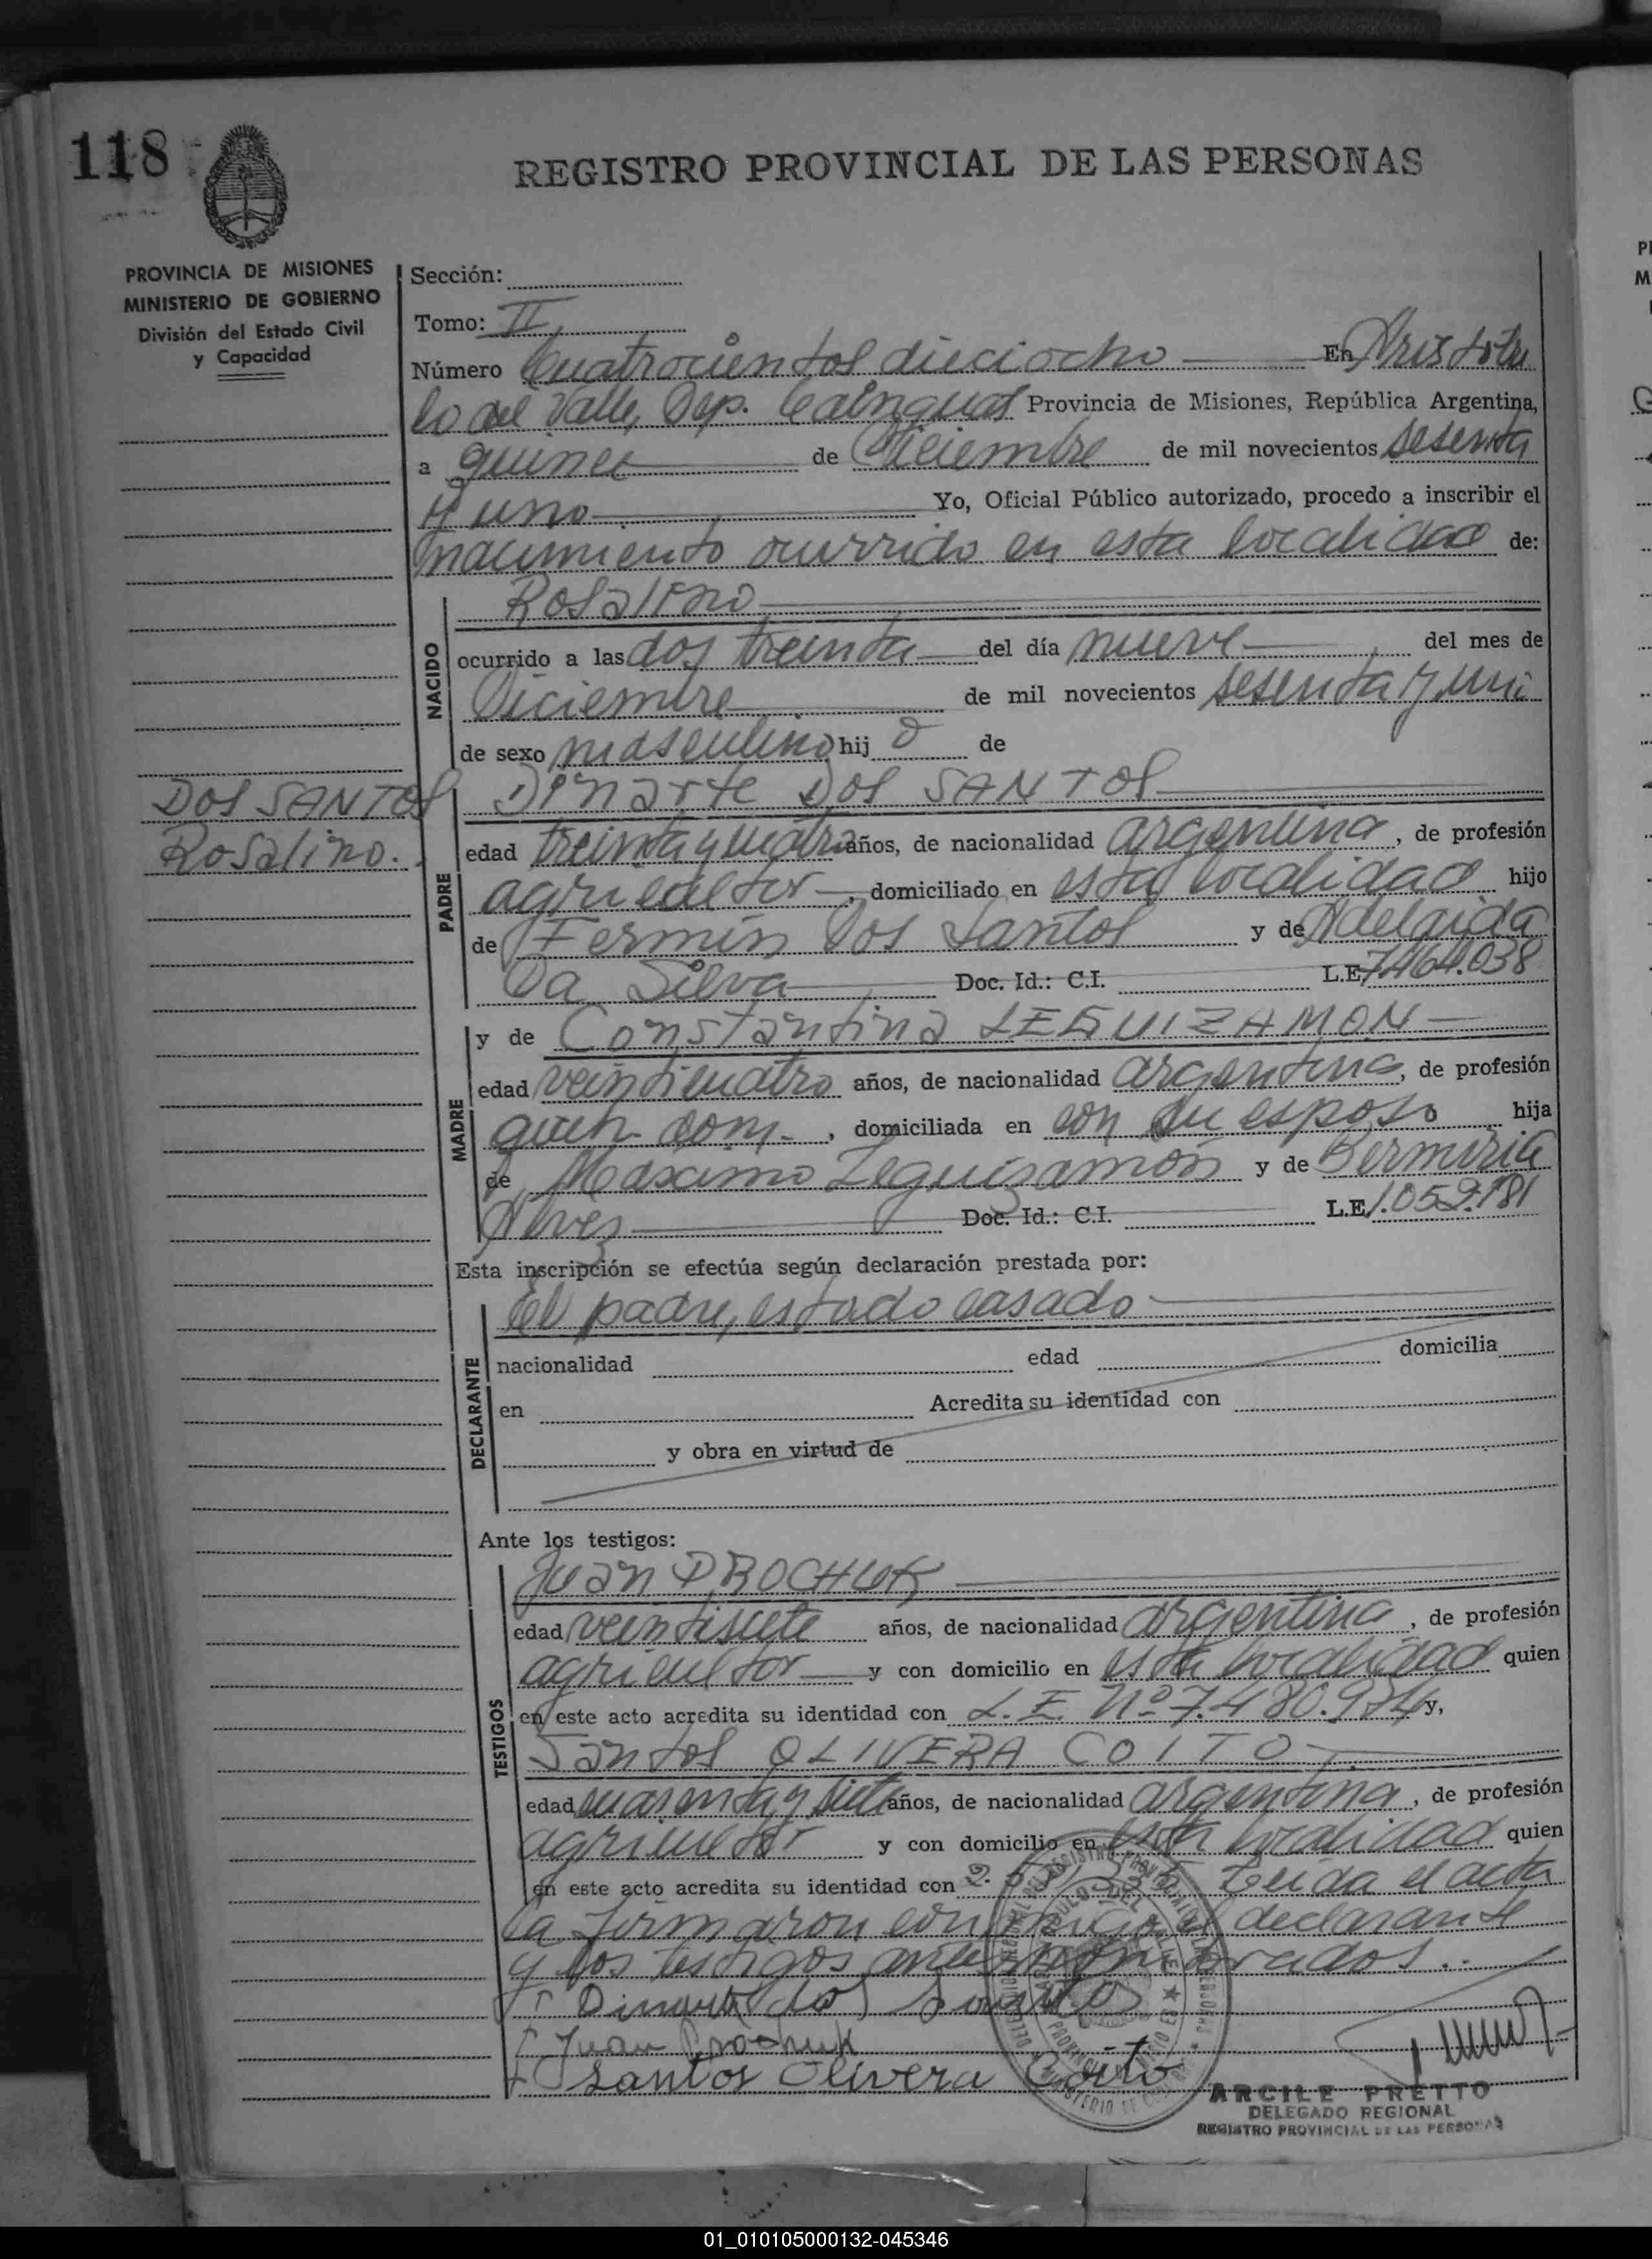 118
REGISTRO PROVINCIAL DE LAS PERSONAS
PROVINCIA DE MISIONES
MINISTERIO DE GOBIERNO
División del Estado Civil
y Capacidad
Sección:
Tomo: II
Número Cuatrocientos dieciocho En Aristóbu
lo del Valle, Dep. Cainguas Provincia de Misiones, República Argentina,
a quince de Diciembre de mil novecientos sesenta
y uno Yo, Oficial Público autorizado, procedo a inscribir el
nacimiento ocurrido en esta localidad de:
NACIDO
Rosalino
ocurrido a las dos treinta del día nueve del mes de
Diciembre de mil novecientos sesenta y uno
de sexo masculino hijo de
DOS SANTOS
Rosalino.
PADRE
Dinarte DOS SANTOS
edad treinta y cuatro años, de nacionalidad argentina, de profesión
agricultor, domiciliado en esta localidad hijo
de Fermín Dos Santos y de Adelaida
Da Silva Doc. Id.: C.I. L.E. 7.464.038
MADRE
y de Constantina LEGUIZAMON
edad veinticuatro años, de nacionalidad argentina, de profesión
queh. dom., domiciliada en con su esposo hija
de Maximo Leguizamón y de
Alvez Doc. Id.: C.I. L.E. 1.059.181
Esta inscripción se efectúa según declaración prestada por:
DECLARANTE
El padre, estado casado
nacionalidad edad domicilia
en Acredita su identidad con
y obra en virtud de
Ante los testigos:
TESTIGOS
Juan PROCHUK
edad veintisiete años, de nacionalidad argentina, de profesión
agricultor y con domicilio en esta localidad quien
en este acto acredita su identidad con L.E. Nº 7.480.974 y,
Santos OLIVERA COITO
edad cuarenta y siete años, de nacionalidad argentina, de profesión
agricultor y con domicilio en esta localidad quien
en este acto acredita su identidad con Leida el acta
la firmaron conmigo el declarante
y los testigos antes nombrados..
Dinarte dos Santos
Juan Prochuk
Santos Olivera Coito
ARCILE PRETTO
DELEGADO REGIONAL
REGISTRO PROVINCIAL DE LAS PERSONAS
01_010105000132-045346